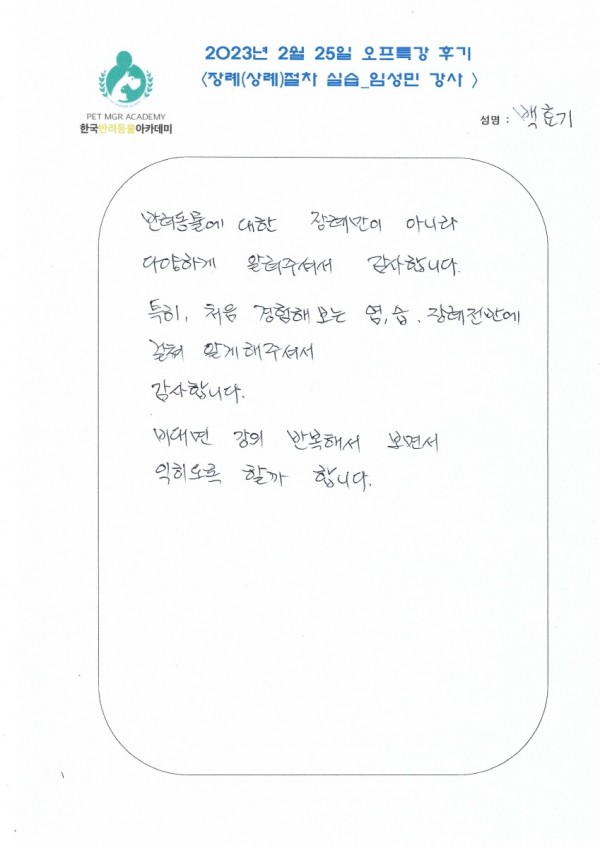 2023년 2월 25일 오프특강 후기
<장례(상례)절차 실습_임성민 강사 >
PET MGR ACADEMY
한국반려동물아카데미
성명 : 백효기
반려동물에 대한 장례만이 아니라
다양하게 알려주셔서 감사합니다.
특히, 처음 경험해 보는 염,습. 장례전반에
걸쳐 알게해주셔서
감사합니다.
비대면 강의 반복해서 보면서
익히도록 할까 합니다.